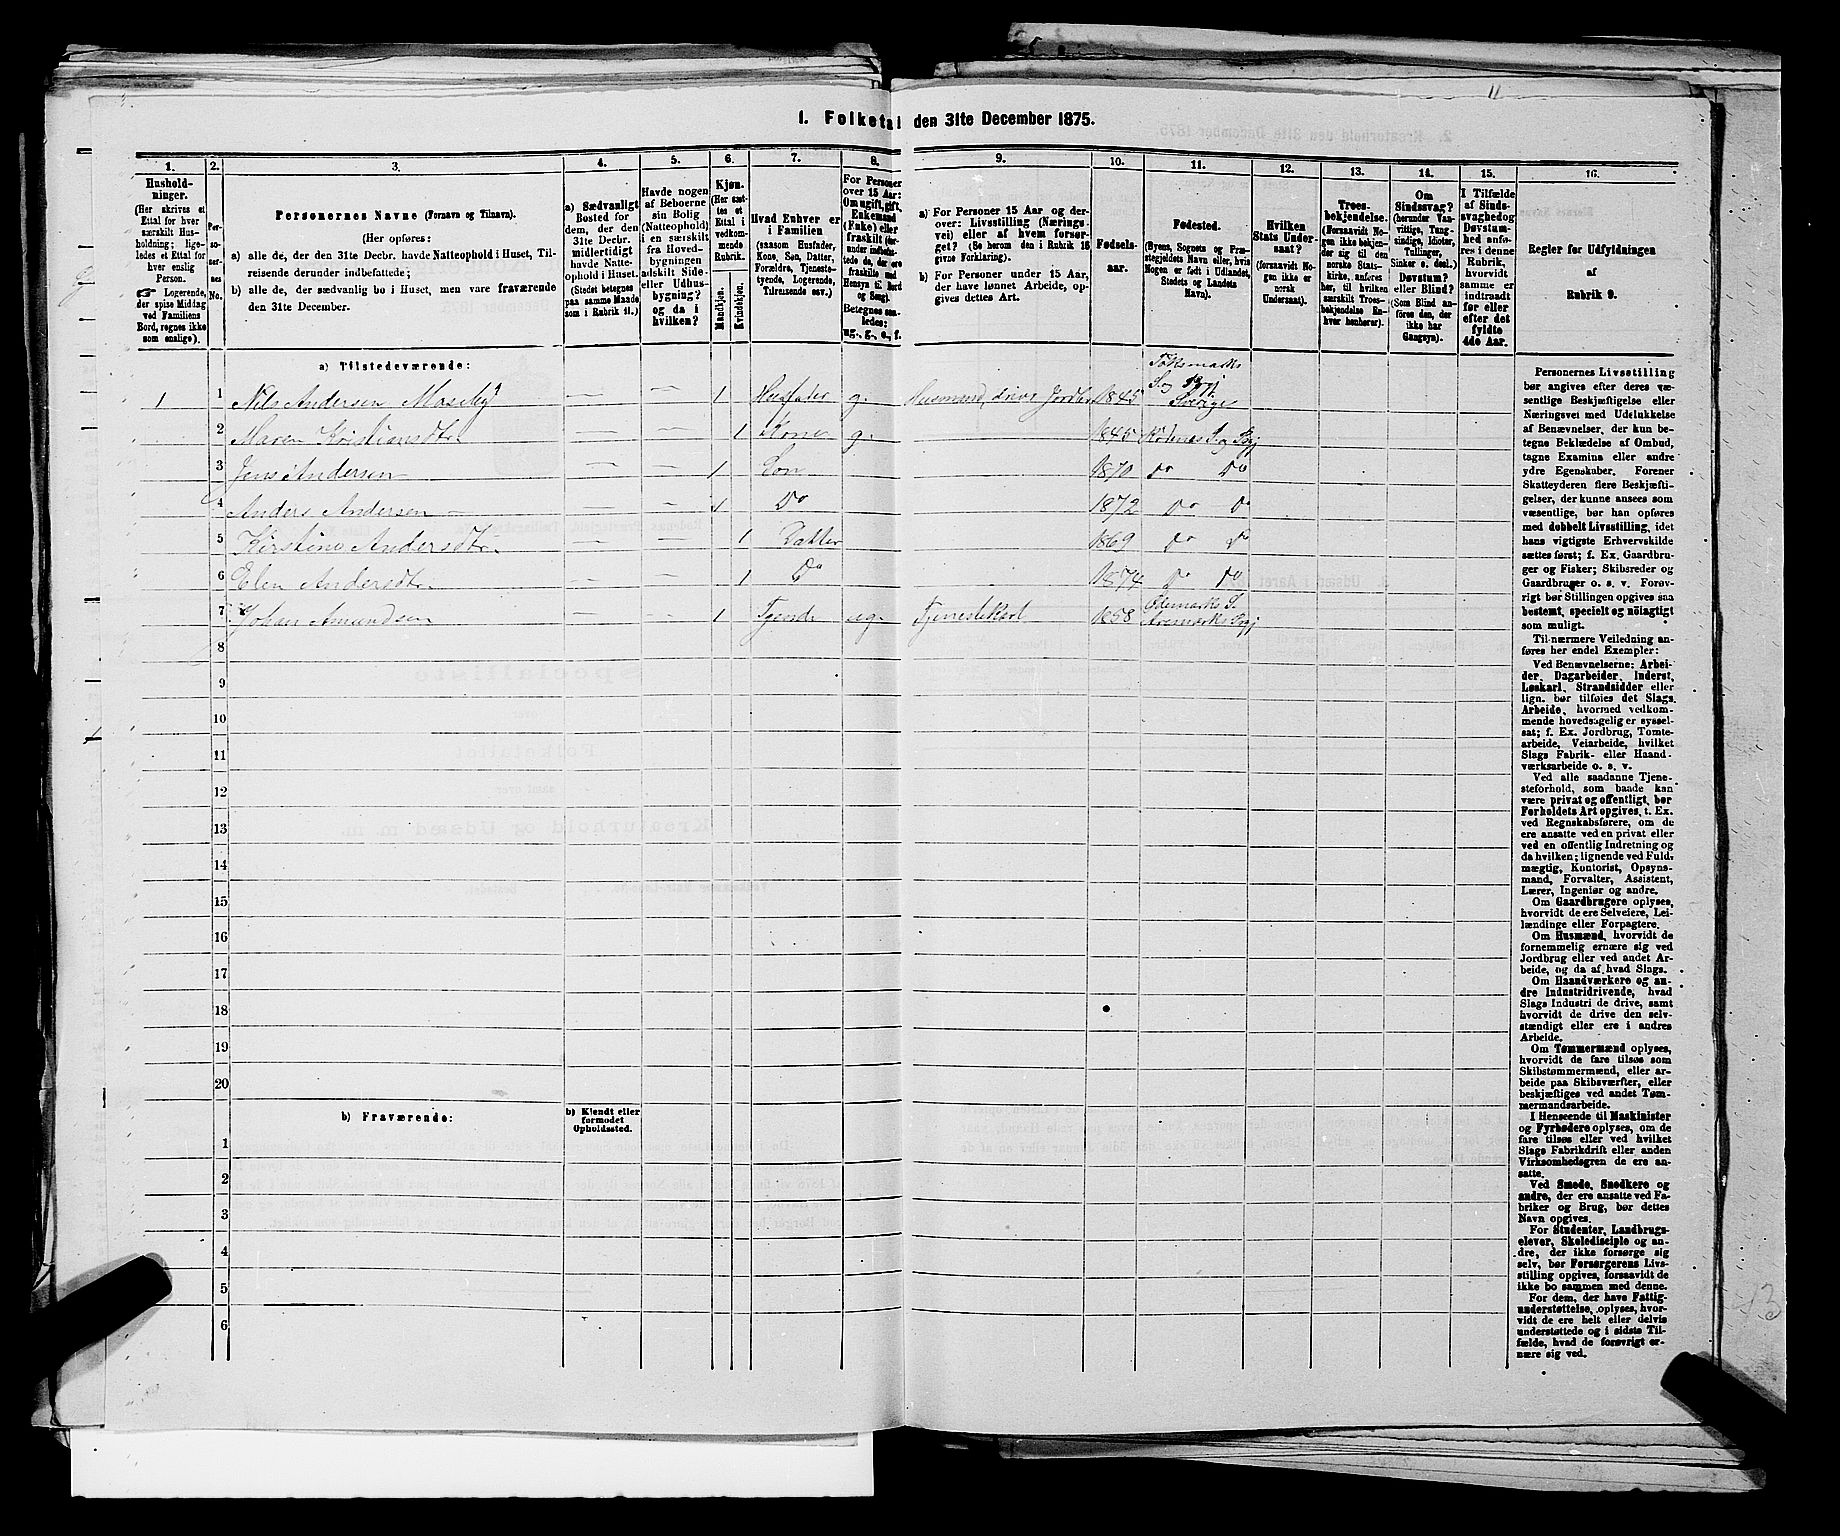 11
1. Folketal den 31te December 1875.
1. 2. 3. 4. 5. 6. 7. 8. 9. 10. 11. 12. 13. 14. 15. 16.
Hushold-
ninger.
(Her skrives et
Ettal for hver
særskilt Hus-
holdning; lige-
ledes et Ettal for
hver enslig
Person.
☞ Logerende,
der spise Middag
ved Familiens
Bord, regnes ikke
som enslige).
Per-
so-
ner-
nes
No.
Personernes Navne (Fornavn og Tilnavn).
(Her opføres:
a) alle de, der den 31te Decbr. havde Natteophold i Huset, Til-
reisende derunder indbefattede;
b) alle de, der sædvanlig bo i Huset, men vare fraværende
den 31te December.
a) Sædvanligt
Bosted for
dem, der den
31te Decbr.
midlertidigt
havde Natte-
ophold i Huset.
(Stedet betegnes
paa samme Maade
som i Rubrik 11.)
Havde nogen
af Beboerne
sin Bolig
(Natteophold)
i en særskilt
fra Hoved-
bygningen
adskilt Side-
eller Udhus-
bygning?
og da i
hvilken?
Kjøn.
(Her sæt-
tes et
Ettal i
vedkom-
mende
Rubrik.
Mandkjøn.
Kvindekjøn.
Hvad Enhver er
i Familien
(saasom Husfader,
Kone, Søn, Datter,
Forældre, Tjeneste-
tyende, Logerende,
Tilreisende osv.)
For Personer
over 15 Aar:
Om ugift, gift,
Enkemand
(Enke) eller
fraskilt
Betegnes saa-
ledes:
ug., g., e., f.
a) For Personer 15 Aar og der-
over: Livsstilling (Nærings-
vei) eller af hvem forsør-
get? (Se herom den i Rubrik 16
givne Forklaring).
b) For Personer under 15 Aar,
der have lønnet Arbeide, op-
gives dettes Art.
Fødsels-
aar.
Fødested.
(Byens, Sognets og Præ-
stegjeldets Navn eller, hvis
Nogen er født i Udlandet,
Stedets og Landets
Navn).
Hvilken
Stats Under-
saat?
(forsaavidt No-
gen ikke er
norsk
Undersaat).
Troes-
bekjendelse.
(Forsaavidt No-
gen ikke bekjen-
der sig til den
norske Stats-
kirke, anføres
her, til hvilken
særskilt Troes-
bekjendelse En-
hver henhører).
Om
Sindssvag?
(herunder Van-
vittige, Tung-
sindige, Idioter,
Tullinger,
Sinker o. desl.)
Døvstum?
eller Blind?
(Som Blind an-
føres den, der
ikke har
Gangsyn).
I Tilfælde
af Sinds-
svaghed og
Døvstum-
hed anfø-
res i denne
Rubrik,
hvorvidt
samme er
indtraadt
før eller
efter det
fyldte
4de Aar.
Regler for Udfyldningen
af
Rubrik 9.
a) Tilstedeværende:
1 1 Nils Andersen Moseby — — 1 Husfader g. Husmand, driver Jordbr 1845 Sverige
2 Maren Kristiansdtr — — 1 Kone g. 1845 Rødenes S. og Prgj
3 Jens Andersen — — 1 Søn 1870 Do Do
4 Anders Andersen — — 1 Do 1872 Do Do
5 Kirstine Andersdtr. — — 1 Datter 1869 Do Do
6 Elen Andersdtr. — — 1 Do 1874 Do Do
7 Johan Amundsen — — 1 Tjend. ug. Tjenestekarl 1858 Ødemarks S. Aremarks Prgj
8
9
10
11
12
13
14
15
16
17
18
19
20
b) Fraværende:
b) Kjendt eller
formodet
Opholdssted.
1
2
3
4
5
6
Personernes Livsstilling
bør angives efter deres væ-
sentlige Beskjæftigelse eller
Næringsvei med Udelukkelse
af Benævnelser, der kun be-
tegne Beklædelse af Ombud,
tagne Examina eller andre
ydre Egenskaber. Forener
Skatteyderen flere Beskjæfti-
gelser, der kunne ansees som
væsentlige, bør han opføres
med dobbelt Livsstilling, idet
hans vigtigste Erhvervskilde
sættes først; f. Ex. Gaardbru-
ger og Fisker; Skibsreder og
Gaardbruger o. s. v. Forøv-
rigt bør Stillingen opgives saa
bestemt, specielt og nøiagtigt
som muligt.
Til nærmere Veiledning an-
føres her endel Exempler:
Ved Benævnelserne: Arbei-
der, Dagarbeider, Inderst,
Løskarl, Strandsidder eller
lign. bør tilføies det Slags
Arbeide, hvormed vedkom-
mende hovedsagelig er syssel-
sat; f. Ex. Jordbrug, Tomte-
arbeide, Veiarbeide, hvilket
Slags Fabrik- eller Haand-
værksarbeide o. s. v.
Ved alle saadanne Tjene-
steforhold, som baade kan
være privat og offentligt, bør
Forholdets Art opgives, t. Ex.
ved Regnskabsførere, om de
ere ansatte ved en privat eller
ved en offentlig Indretning og
da hvilken; lignende ved Fuld-
mægtig, Kontorist, Opsyns-
mand, Forvalter, Assistent,
Lærer, Ingeniør og andre.
Om Gaardbrugere oplyses,
hvorvidt de ere Selveiere, Lei-
lændinge eller Forpagtere.
Om Husmænd, hvorvidt de
fornemmelig ernære sig ved
Jordbrug eller ved andet Ar-
beide, og da af hvad Slags.
Om Haandværkere og an-
dre Industridrivende, hvad
Slags Industri de drive, samt
hvorvidt de drive den selv-
stændigt eller ere i andres
Arbeide.
Om Tømmermænd oplyses,
hvorvidt de fare tilsøs som
Skibstømmermænd, eller ar-
beide paa Skibsværfter, eller
beskjæftiges ved andet Tøm-
mermandsarbeide.
I Henseende til Maskinister
og Fyrbødere oplyses, om de
fare tilsøs eller ved hvilket
Slags Fabrikdrift eller anden
Virksomhedsgren de ere an-
satte.
Ved Smede, Snedkere og
andre, der ere ansatte ved Fa-
briker og Brug, bør dettes
Navn opgives.
For Studenter, Landbrugs-
elever, Skoledisciple og an-
dre, der ikke forsørge sig
selv, bør Forsørgerens Livs-
stilling opgives, forsaavidt de
ikke bo sammen med denne.
For dem, der have Fattig-
understøttelse, oplyses, hvor-
vidt de ere helt eller delvis
understøttede og i sidste Til-
fælde, hvad de forøvrigt er-
nære sig ved.